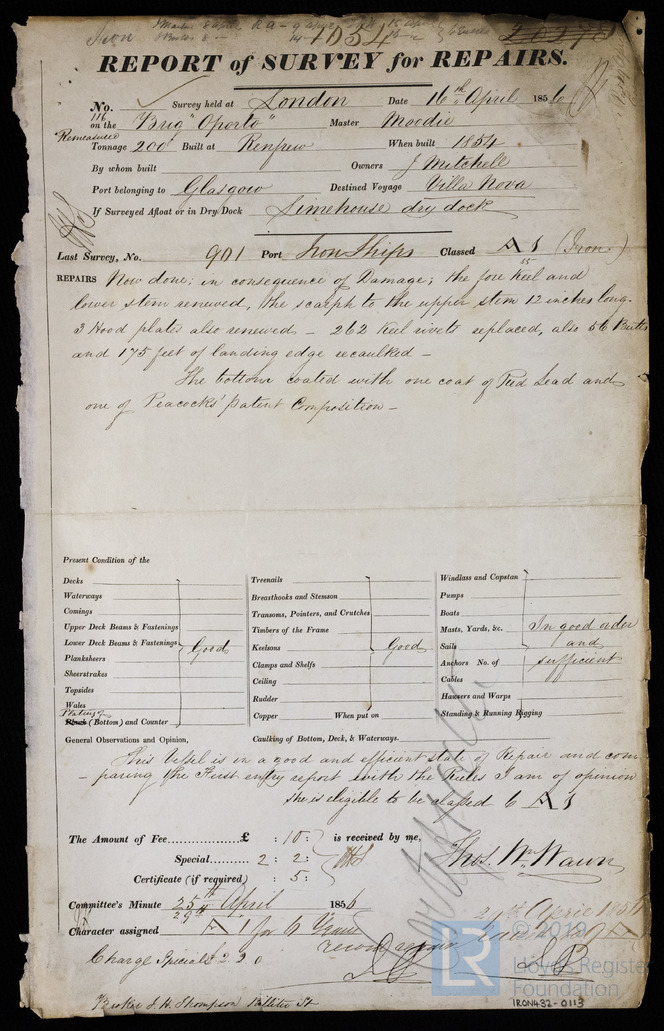 1054
REPORT of SURVEY for REPAIRS.
No. Survey held at London Date 16th April 1856
116
on the Brig "Oporto" Master Moodie
Remeasured
Tonnage 200 Built at Renfrew When built 1854
By whom built Owners J Mitchell
Port belonging to Glasgow Destined Voyage Villa Nova
If Surveyed Afloat or in Dry Dock Limehouse dry dock
Last Survey, No. 901 Port Iron Ships Classed A 1 (Iron)
55
REPAIRS Now done; in consequence of Damage; the fore keel and
lower stem renewed, the scarph to the upper stem 12 inches long.
3 Hood plates also renewed - 262 keel rivets replaced, also 56 Butts
and 175 feet of landing edge recaulked -
The bottom coated with one coat of Red Lead and
one of Peacocks' patent Composition -
Present Condition of the
Decks
Waterways
Comings
Upper Deck Beams & Fastenings
Lower Deck Beams & Fastenings Good
Planksheers
Sheerstrakes
Topsides
Wales
Plating of
(Bottom) and Counter
Treenails
Breasthooks and Stemson
Transoms, Pointers, and Crutches
Timbers of the Frame
Keelsons Good
Clamps and Shelfs
Ceiling
Rudder
Copper When put on
Windlass and Capstan
Pumps
Boats
Masts, Yards, &c. In good order
Sails and
Anchors No. of sufficient
Cables
Hawsers and Warps
Standing & Running Rigging
General Observations and Opinion, Caulking of Bottom, Deck, & Waterways.
This Vessel is in a good and efficient state of Repair and com-
-paring the First entry report with the Rules I am of opinion
she is eligible to be classed 6 A 1
The Amount of Fee £ : 10 : is received by me,
Special 2 : 2 :
Certificate (if required) : 5 :
Thos. Wm. Wawn
Committee's Minute 25th April 1856
29th
Character assigned A 1 for 6 Years
29th April 1856
Charge Special £ 2.2.0
Broker J. H. Thompson Billiter St
LR
© 2019
Lloyd's Register
Foundation
IRON432-0113